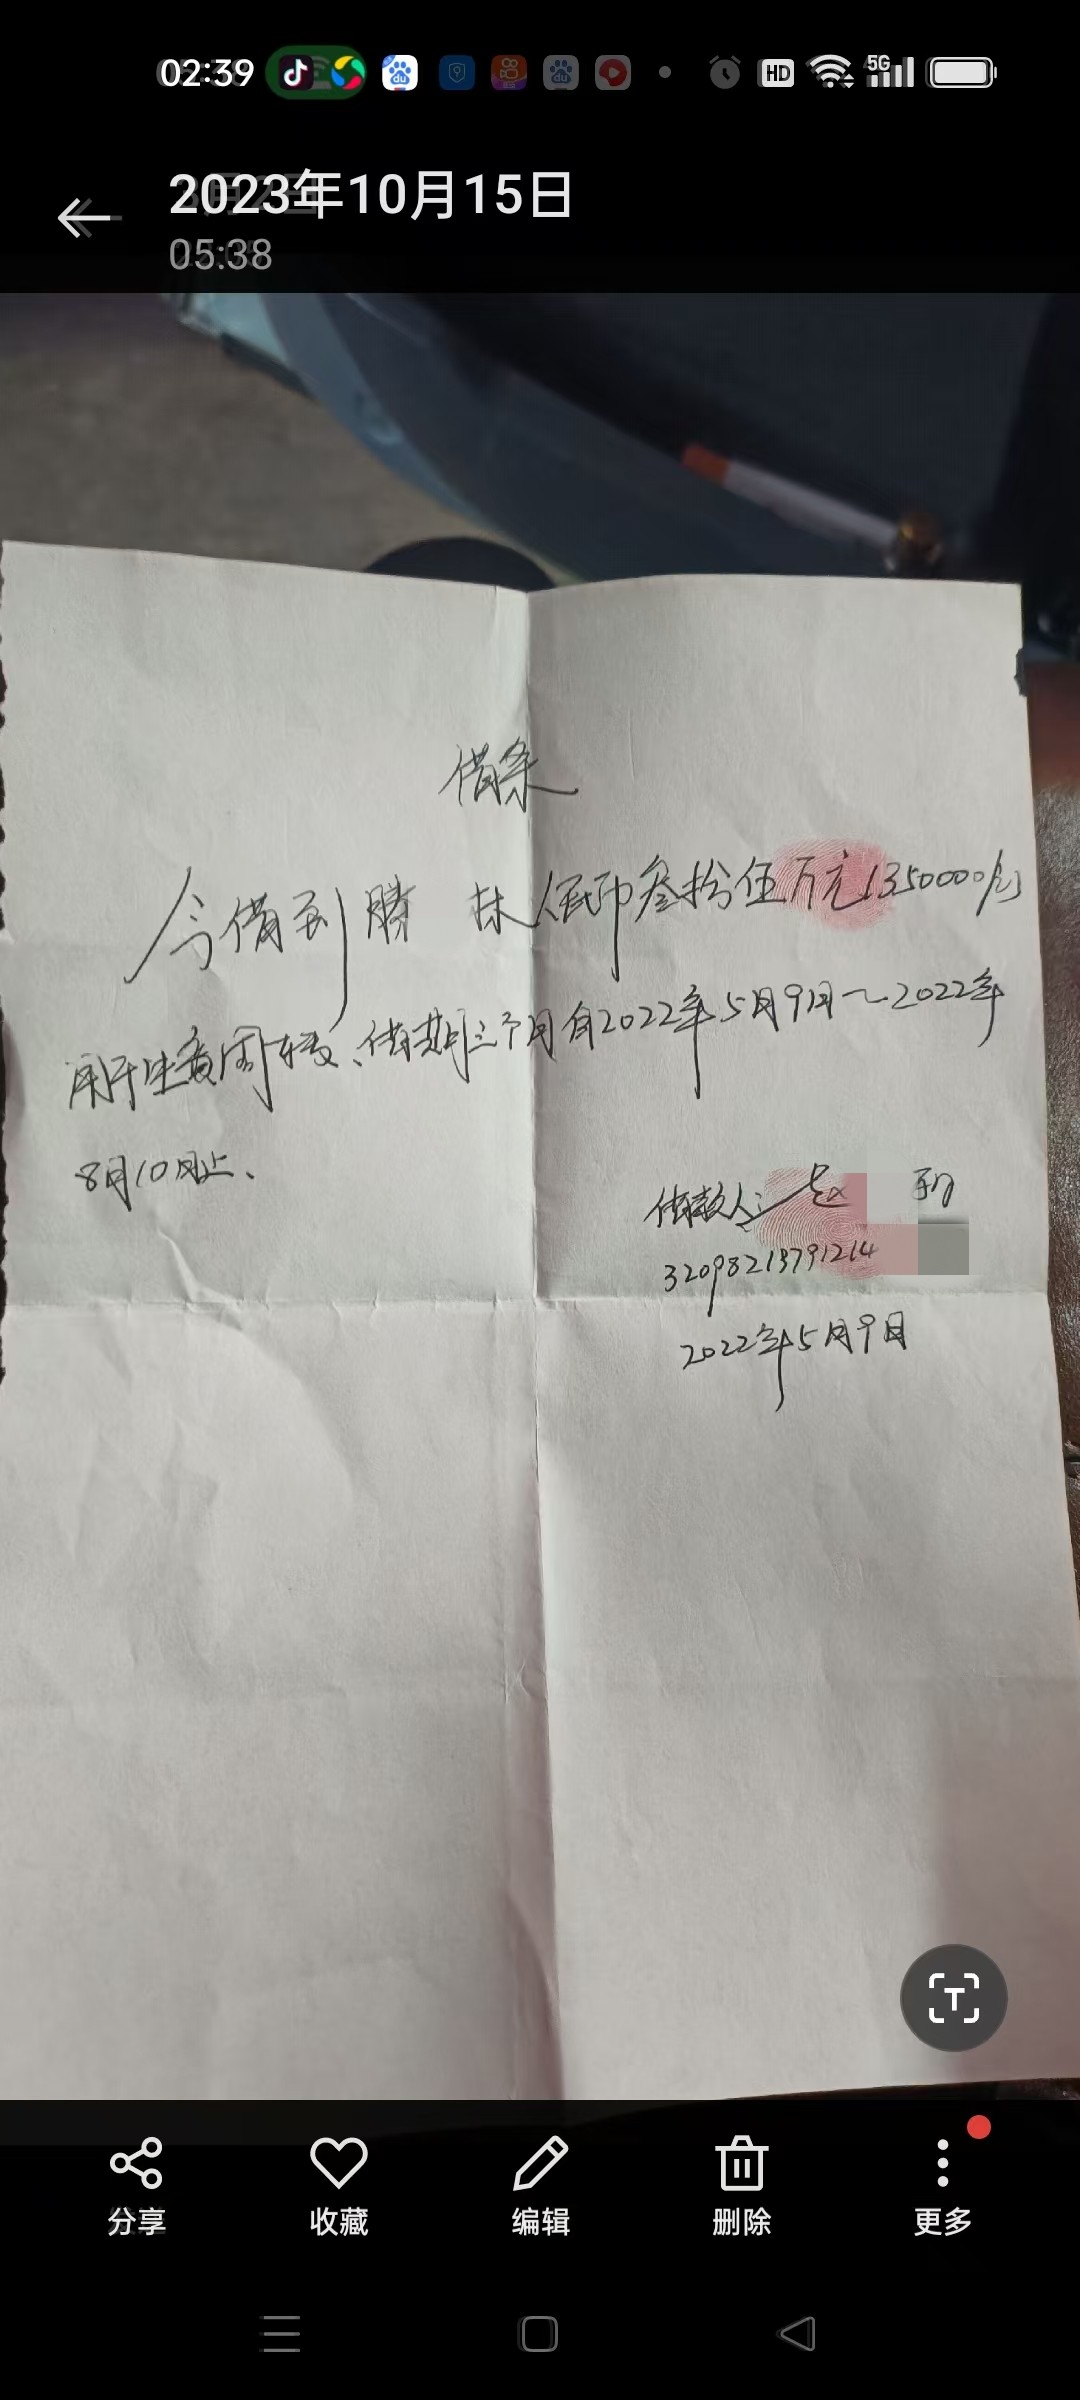 02:39
HD
5G
2023年10月15日
05:38
借条
今借到 滕 扶人民币叁拾伍万元(350000元)
用于生意周转、借期三个月自2022年5月9日~2022年
8月10日止、
借款人:
32098219791214
2022年5月9日
T
分享
收藏
编辑
删除
更多